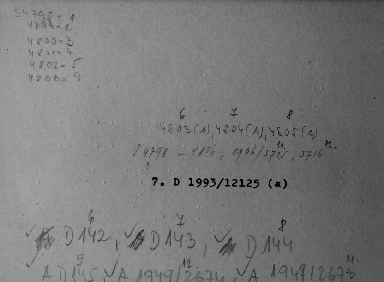 S 4798 - 1
4799 - 2
4800 - 3
4801 - 4
4802 - 5
4806 = 9
6 7 8
4803 (A), 4804 (A), 4805 (A)
S 4798 - 4806, 1948/3715, 3716
1
7. D 1993/12125 (a)
6 7 8
D 142, D 143, D 144
9 12 11.
A D 145, A 1949/2674, A 1949/2673